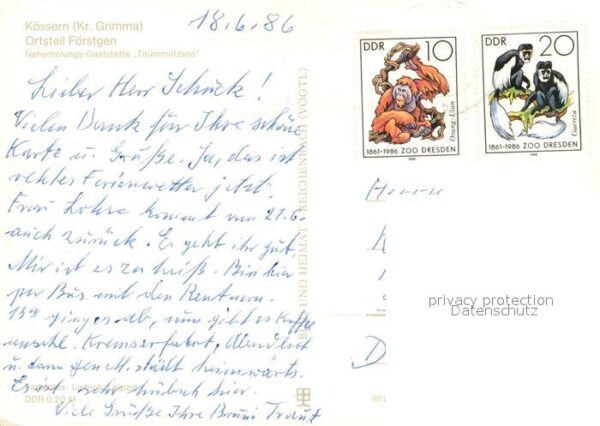 18.6.86
Kössern (Kr. Grimma)
Ortsteil Förstgen
Naherholungs-Gaststätte „Thümmlitzsee"
Lieber Herr Schück!
Vielen Dank für Ihre schöne
Karte u. Grüße. Ja, das ist
rechtes Ferienwetter jetzt.
Frau Lohse kommt am 21.6.
auch zurück. Es geht ihr gut.
Mir ist es zu heiß. Bin hier
per Bus mit den Rentnern.
13 ging es ab, nun gibt es Kaffee
anschl. Kremserfahrt, Abendbrot
u. dann gen M. städt heimwärts.
Es ist sehr hübsch hier.
Viele Grüße Ihre
DDR 0,20 M
BILD UND HEIMAT REICHENBACH (VOGTL)
DDR 10
Orang-Utan
1861-1986 ZOO DRESDEN
DDR 20
Guereza
1861-1986 ZOO DRESDEN
Herrn
D
privacy protection
Datenschutz